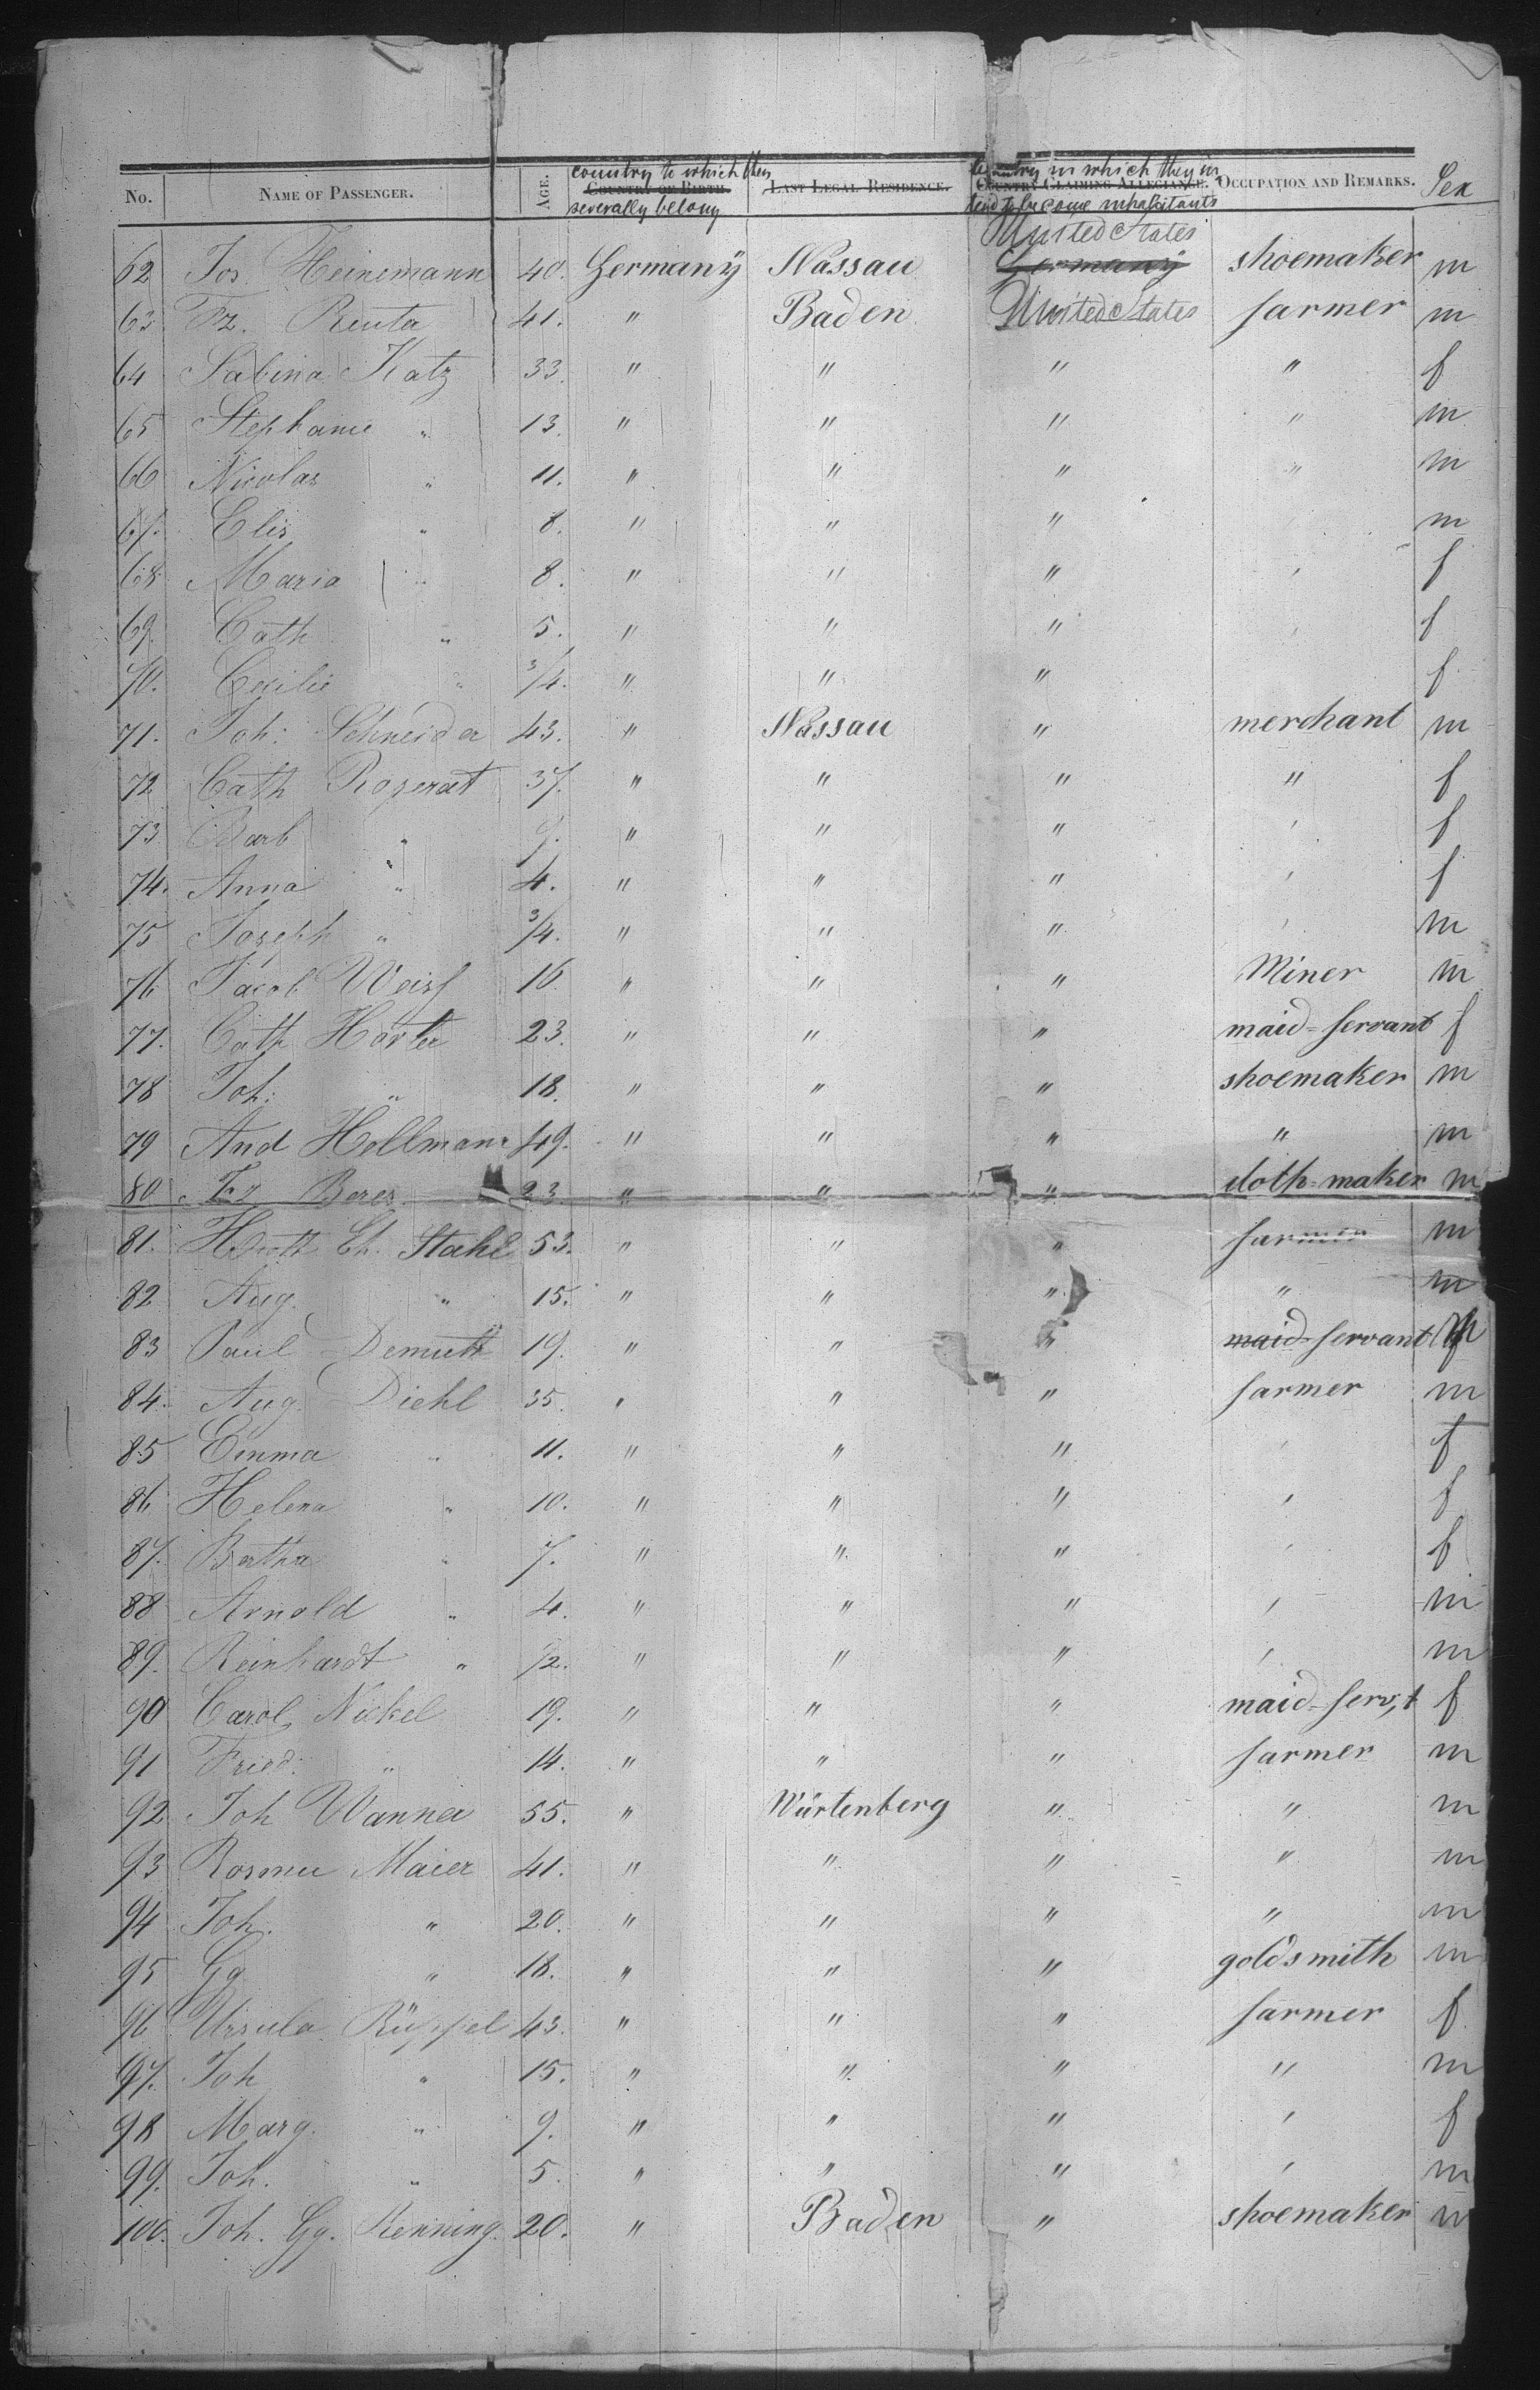 No. NAME OF PASSENGER. AGE. country to which they severally belong COUNTRY OF BIRTH. LAST LEGAL RESIDENCE. country in which they intend to become inhabitants COUNTRY CLAIMING ALLEGIANCE. OCCUPATION AND REMARKS. Sex
United States
62 Jos. Heinemann 40. Germany Nassau Germany shoemaker m
63 Fz. Reuta 41. " Baden United States farmer m
64 Sabina Katz 33. " " " " f
65 Stephanie " 13. " " " " m
66 Nicolas " 11. " " " " m
67. Elis " 8. " " " m
68 Maria " 8. " " " ' f
69. Cath " 5. " " " ' f
70. Cecilie " 3/4. " " " f
71. Joh: Schneider 43. " Nassau " merchant m
72 Cath Rozerat 37. " " " " f
73 Barb " 9. " " " ' f
74. Anna " 4. " " " ' f
75 Joseph " 3/4. " " " ' m
76 Jacob Weisf 16 " " " Miner m
77. Cath Horter 23. " " " maid-servant f
78 Joh: " 18. " " " shoemaker m
79 And Hellmann 49. " " " " m
80 Fz Beres 23. " " " cloth-maker m
81. Ch. Stahl 53. " " " farmer m
82 Aug. " 15. " " " " m
83 Paul Demuth 19. " " " maid-servant m
84. Aug. Diehl 35. " " " farmer m
85 Emma " 11. " " " ' f
86 Helena " 10. " " " ' f
87. Bertha " 7. " " " ' f
88 Arnold " 4. " " " ' m
89. Reinhardt " 1/2. " " " ' m
90 Carol. Nickel 19. " " " maid-serv,t f
91 Fried. " 14. " " " farmer m
92 Joh Wanner 55. " Würtenberg " " m
93 Maier 41. " " " " m
94 Joh. " 20. " " " " m
95 Gg " 18. " " " goldsmith m
96 Ursula Rüppel 43. " " " farmer f
97. Joh " 15. " " " " m
98 Marg. " 9. " " " ' f
99. Joh. " 5. " " " ' m
100. Joh. Gg. Renning. 20. " Baden " shoemaker m